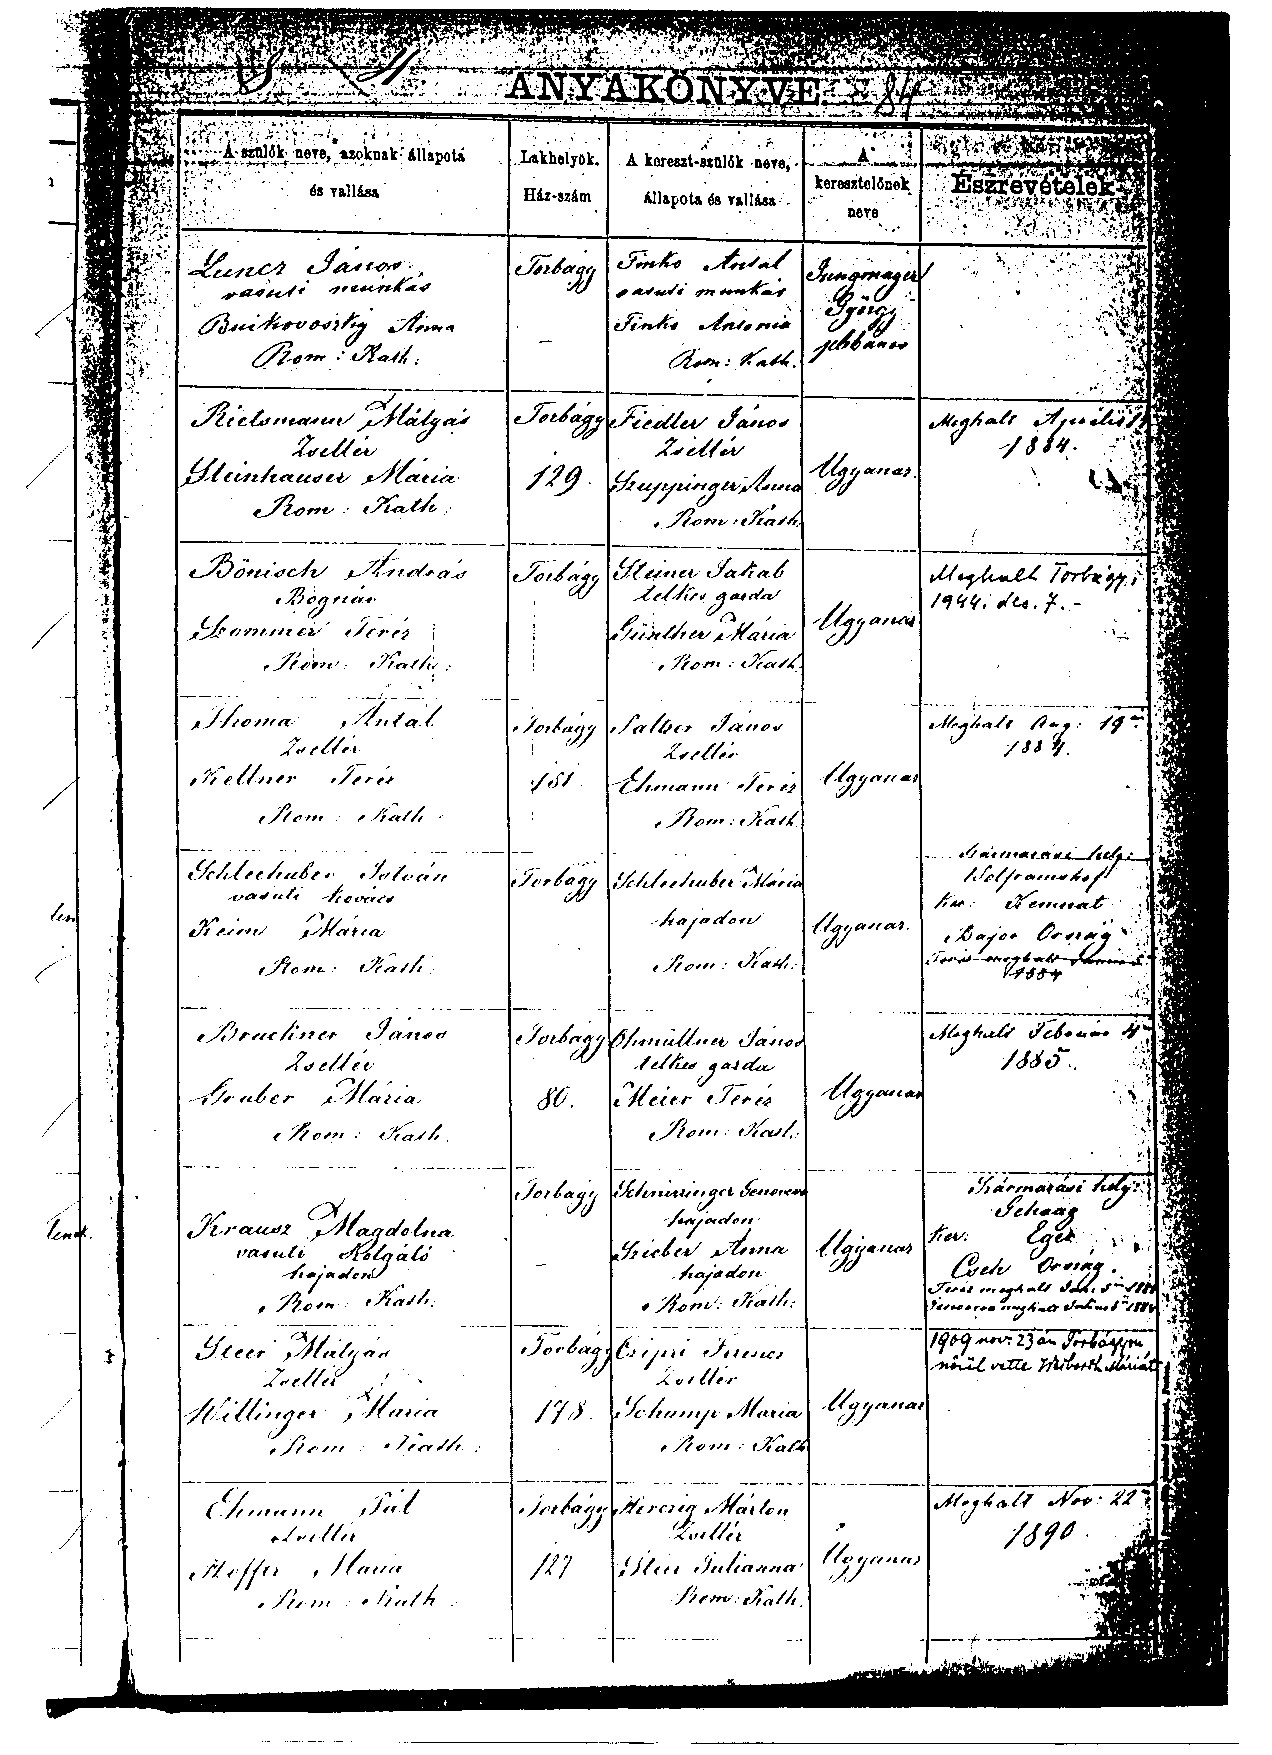 ANYAKÖNYVE 84
A szülők neve, azoknak állapota
és vallása
Lakhelyök.
Ház-szám
A kereszt-szülők neve,
állapota és vallása
A
keresztelőnek
neve
Észrevételek
Luncz János
vasuti munkás
Anna
Rom: Kath:
Torbágy
Tinko Antal
vasuti munkás
Tinko Antonia
Rom: Kath.
Jungmayer
György
plébános
Rietsmann Mátyás
Zsellér
Steinhauser Mária
Rom: Kath:
Torbágy
129.
Fiedler János
Zsellér
Szuppinger Anna
Rom: Kath.
Ugyanaz.
Meghalt Április
1884.
Bönisch András
Bognár
Sommer Teréz
Rom: Kath:
Torbágy
Steiner Jakab
telkes gazda
Günther Mária
Rom: Kath.
Ugyanaz
Meghalt Torbágy,
1944. dec. 7.-
Thoma Antal
Zsellér
Kellner Teréz
Rom: Kath:
Torbágy
181
János
Zsellér
Ehmann Teréz
Rom: Kath.
Ugyanaz
Meghalt Aug: 19én
1884.
Schlechuber István
vasuti kovács
Keim Mária
Rom: Kath.
Torbágy
Schlechuber Mária
hajadon
Rom: Kath:
Ugyanaz.
Származási hely:
Wolframshof
Ker: Kemnat
Bajor Ország
Teréz meghalt
1884
Bruckner János
Zsellér
Gruber Mária
Rom: Kath.
Torbágy
80.
Ohmüllner János
telkes gazda
Meier Teréz
Rom: Kath:
Ugyanaz
Meghalt Február 4én
1885.
Krausz Magdolna
vasuti szolgáló
hajadon
Rom: Kath:
Torbágy
Schnirringer Genoveva
hajadon
Szieber Anna
hajadon
Rom: Kath:
Ugyanaz
Származási hely:
Schaag
Ker: Eger
Cseh Ország.
Teréz meghalt Jan: 5én 1884
Genoveva meghalt Julius 6 1884
Steer Mátyás
Zsellér
Willinger Mária
Rom: Kath:
Torbágy
178.
Csipri Ferencz
Zsellér
Schamp Maria
Rom: Kath
Ugyanaz
1909 nov. 23án Torbágyon
nőül vette Máriát
Ehmann Pál
Zsellér
Hoffer Maria
Rom: Kath
Torbágy
127
Herczig Márton
Zsellér
Steer Julianna
Rom: Kath.
Ugyanaz
Meghalt Nov: 22én
1890.